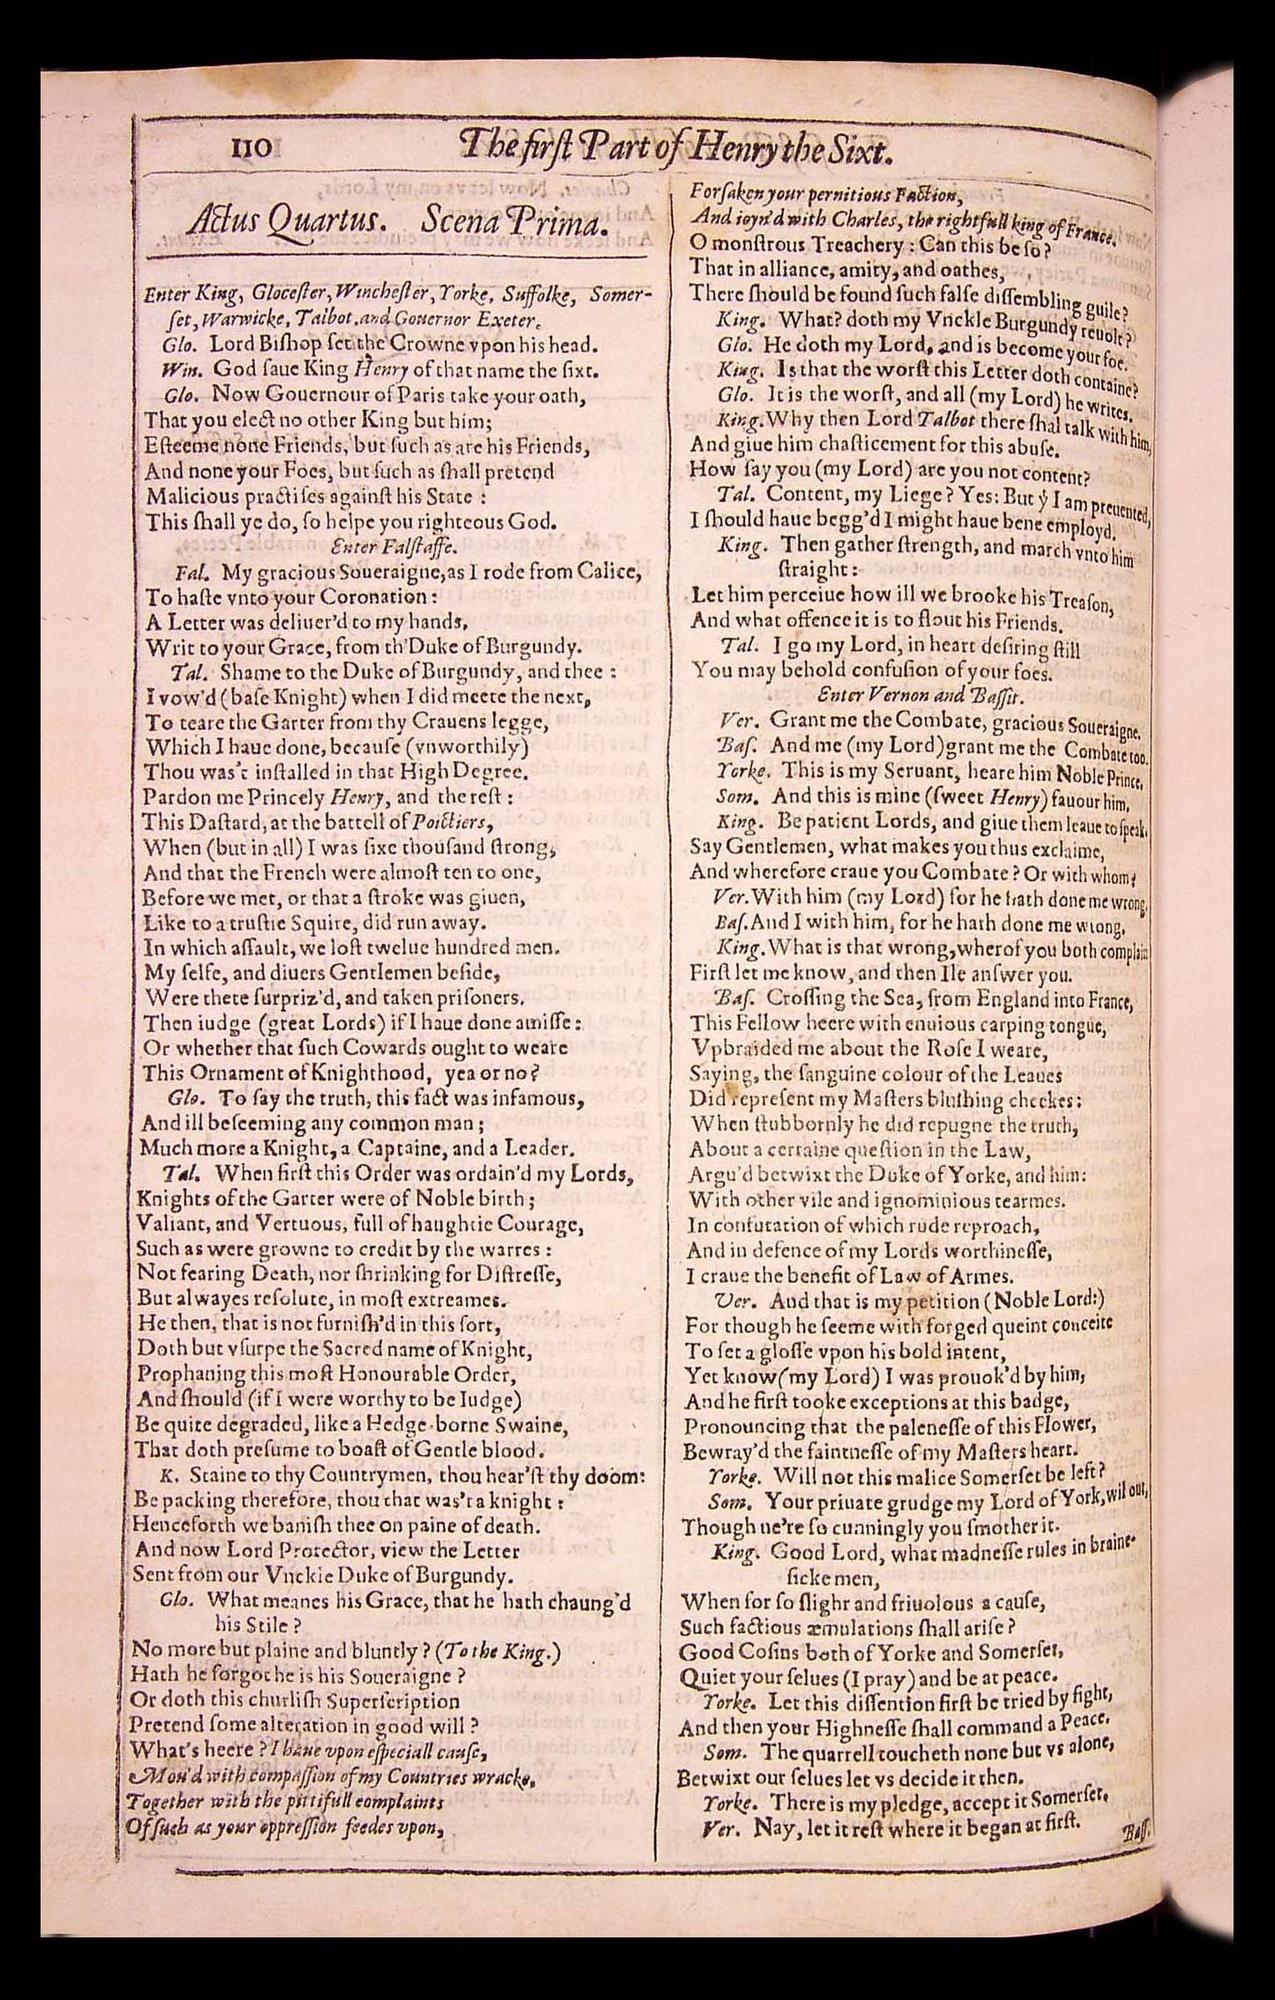 110
The first Part of Henry the Sixt.
Actus Quartus. Scena Prima.
Enter King, Glocester, Winchester, Yorke, Suffolke, Somer-
set, Warwicke, Talbot, and Gouernor Exeter.
Glo. Lord Bishop set the Crowne vpon his head.
Win. God saue King Henry of that name the sixt.
Glo. Now Gouernour of Paris take your oath,
That you elect no other King but him;
Esteeme none Friends, but such as are his Friends,
And none your Foes, but such as shall pretend
Malicious practises against his State :
This shall ye do, so helpe you righteous God.
Enter Falstaffe.
Fal. My gracious Soueraigne, as I rode from Calice,
To haste vnto your Coronation :
A Letter was deliuer'd to my hands,
Writ to your Grace, from th'Duke of Burgundy.
Tal. Shame to the Duke of Burgundy, and thee :
I vow'd (base Knight) when I did meete the next,
To teare the Garter from thy Crauens legge,
Which I haue done, because (vnworthily)
Thou was't installed in that High Degree.
Pardon me Princely Henry, and the rest :
This Dastard, at the battell of Poictiers,
When (but in all) I was sixe thousand strong,
And that the French were almost ten to one,
Before we met, or that a stroke was giuen,
Like to a trustie Squire, did run away.
In which assault, we lost twelue hundred men.
My selfe, and diuers Gentlemen beside,
Were there surpriz'd, and taken prisoners.
Then iudge (great Lords) if I haue done amisse :
Or whether that such Cowards ought to weare
This Ornament of Knighthood, yea or no?
Glo. To say the truth, this fact was infamous,
And ill beseeming any common man ;
Much more a Knight, a Captaine, and a Leader.
Tal. When first this Order was ordain'd my Lords,
Knights of the Garter were of Noble birth ;
Valiant, and Vertuous, full of haughtie Courage,
Such as were growne to credit by the warres :
Not fearing Death, nor shrinking for Distresse,
But alwayes resolute, in most extreames.
He then, that is not furnish'd in this sort,
Doth but vsurpe the Sacred name of Knight,
Prophaning this most Honourable Order,
And should (if I were worthy to be Iudge)
Be quite degraded, like a Hedge-borne Swaine,
That doth presume to boast of Gentle blood.
K. Staine to thy Countrymen, thou hear'st thy doom:
Be packing therefore, thou that was't a knight :
Henceforth we banish thee on paine of death.
And now Lord Protector, view the Letter
Sent from our Vnckle Duke of Burgundy.
Glo. What meanes his Grace, that he hath chaung'd
his Stile ?
No more but plaine and bluntly ? (To the King.)
Hath he forgot he is his Soueraigne ?
Or doth this churlish Superscription
Pretend some alteration in good will ?
What's heere ? I haue vpon especiall cause,
Mou'd with compassion of my Countries wracke,
Together with the pittifull complaints
Of such as your oppression feedes vpon,
Forsaken your pernitious Faction,
And ioyn'd with Charles, the rightfull king of France.
O monstrous Treachery : Can this be so ?
That in alliance, amity, and oathes,
There should be found such false dissembling guile?
King. What? doth my Vnckle Burgundy reuolt?
Glo. He doth my Lord, and is become your foe.
King. Is that the worst this Letter doth containe?
Glo. It is the worst, and all (my Lord) he writes.
King. Why then Lord Talbot there shal talk with him,
And giue him chasticement for this abuse.
How say you (my Lord) are you not content?
Tal. Content, my Liege? Yes: But yͭ I am preuented,
I should haue begg'd I might haue bene employd.
King. Then gather strength, and march vnto him
straight :
Let him perceiue how ill we brooke his Treason,
And what offence it is to flout his Friends.
Tal. I go my Lord, in heart desiring still
You may behold confusion of your foes.
Enter Vernon and Bassit.
Ver. Grant me the Combate, gracious Soueraigne.
Bas. And me (my Lord) grant me the Combate too.
Yorke. This is my Seruant, heare him Noble Prince,
Som. And this is mine (sweet Henry) fauour him.
King. Be patient Lords, and giue them leaue to speak.
Say Gentlemen, what makes you thus exclaime,
And wherefore craue you Combate? Or with whom?
Ver. With him (my Lord) for he hath done me wrong.
Bas. And I with him, for he hath done me wrong.
King. What is that wrong, wherof you both complain
First let me know, and then Ile answer you.
Bas. Crossing the Sea, from England into France,
This Fellow heere with enuious carping tongue,
Vpbraided me about the Rose I weare,
Saying, the sanguine colour of the Leaues
Did represent my Masters blushing cheekes:
When stubbornly he did repugne the truth,
About a certaine question in the Law,
Argu'd betwixt the Duke of Yorke, and him:
With other vile and ignominious tearmes.
In confutation of which rude reproach,
And in defence of my Lords worthinesse,
I craue the benefit of Law of Armes.
Ver. And that is my petition (Noble Lord:)
For though he seeme with forged queint conceite
To set a glosse vpon his bold intent,
Yet know (my Lord) I was prouok'd by him,
And he first tooke exceptions at this badge,
Pronouncing that the palenesse of this Flower,
Bewray'd the faintnesse of my Masters heart.
Yorke. Will not this malice Somerset be left?
Som. Your priuate grudge my Lord of York, wil out,
Though ne're so cunningly you smother it.
King. Good Lord, what madnesse rules in braine-
sicke men,
When for so slight and friuolous a cause,
Such factious æmulations shall arise ?
Good Cosins both of Yorke and Somerset,
Quiet your selues (I pray) and be at peace.
Yorke. Let this dissention first be tried by fight,
And then your Highnesse shall command a Peace.
Som. The quarrell toucheth none but vs alone,
Betwixt our selues let vs decide it then.
Yorke. There is my pledge, accept it Somerset.
Ver. Nay, let it rest where it began at first.
Bass.